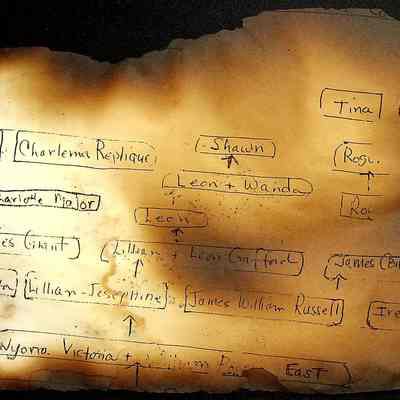 Tina
Charlema Replique
Shawn
Rosi
Leon + Wanda
Charlotte Major
Leon
Ro
es Grant
Lillian + Leon
James
Lillian-Josephine
James William Russell
Ire
Wyoria Victoria +
East